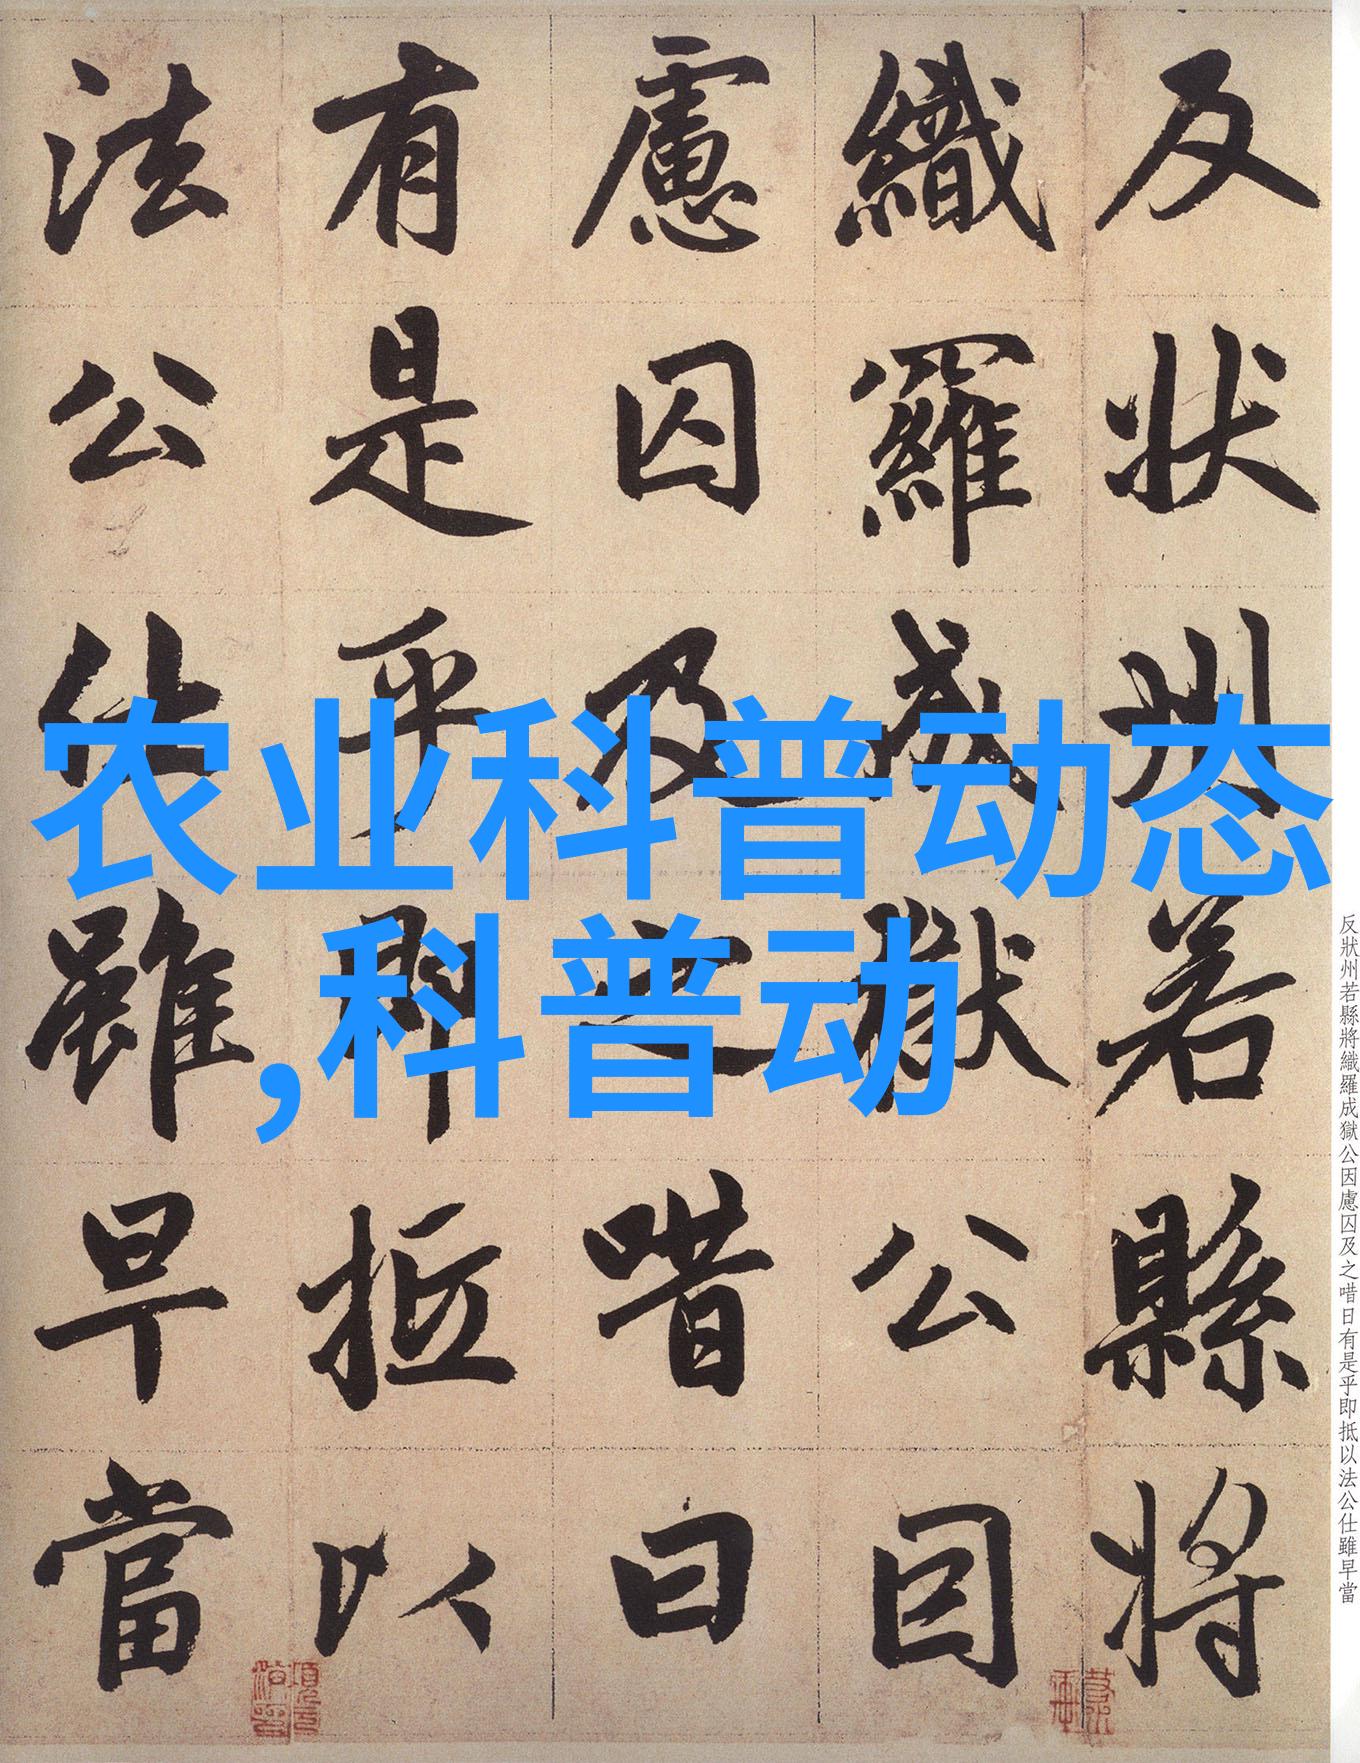 反狀州若縣將
織羅成獄公因
慮囚及之喈曰
有是乎即抵以
法公仕雖早當
农业科普动态
,科普动
反狀州若縣將織羅成獄公因慮囚及之喈日有是乎即抵以法公仕雖早當